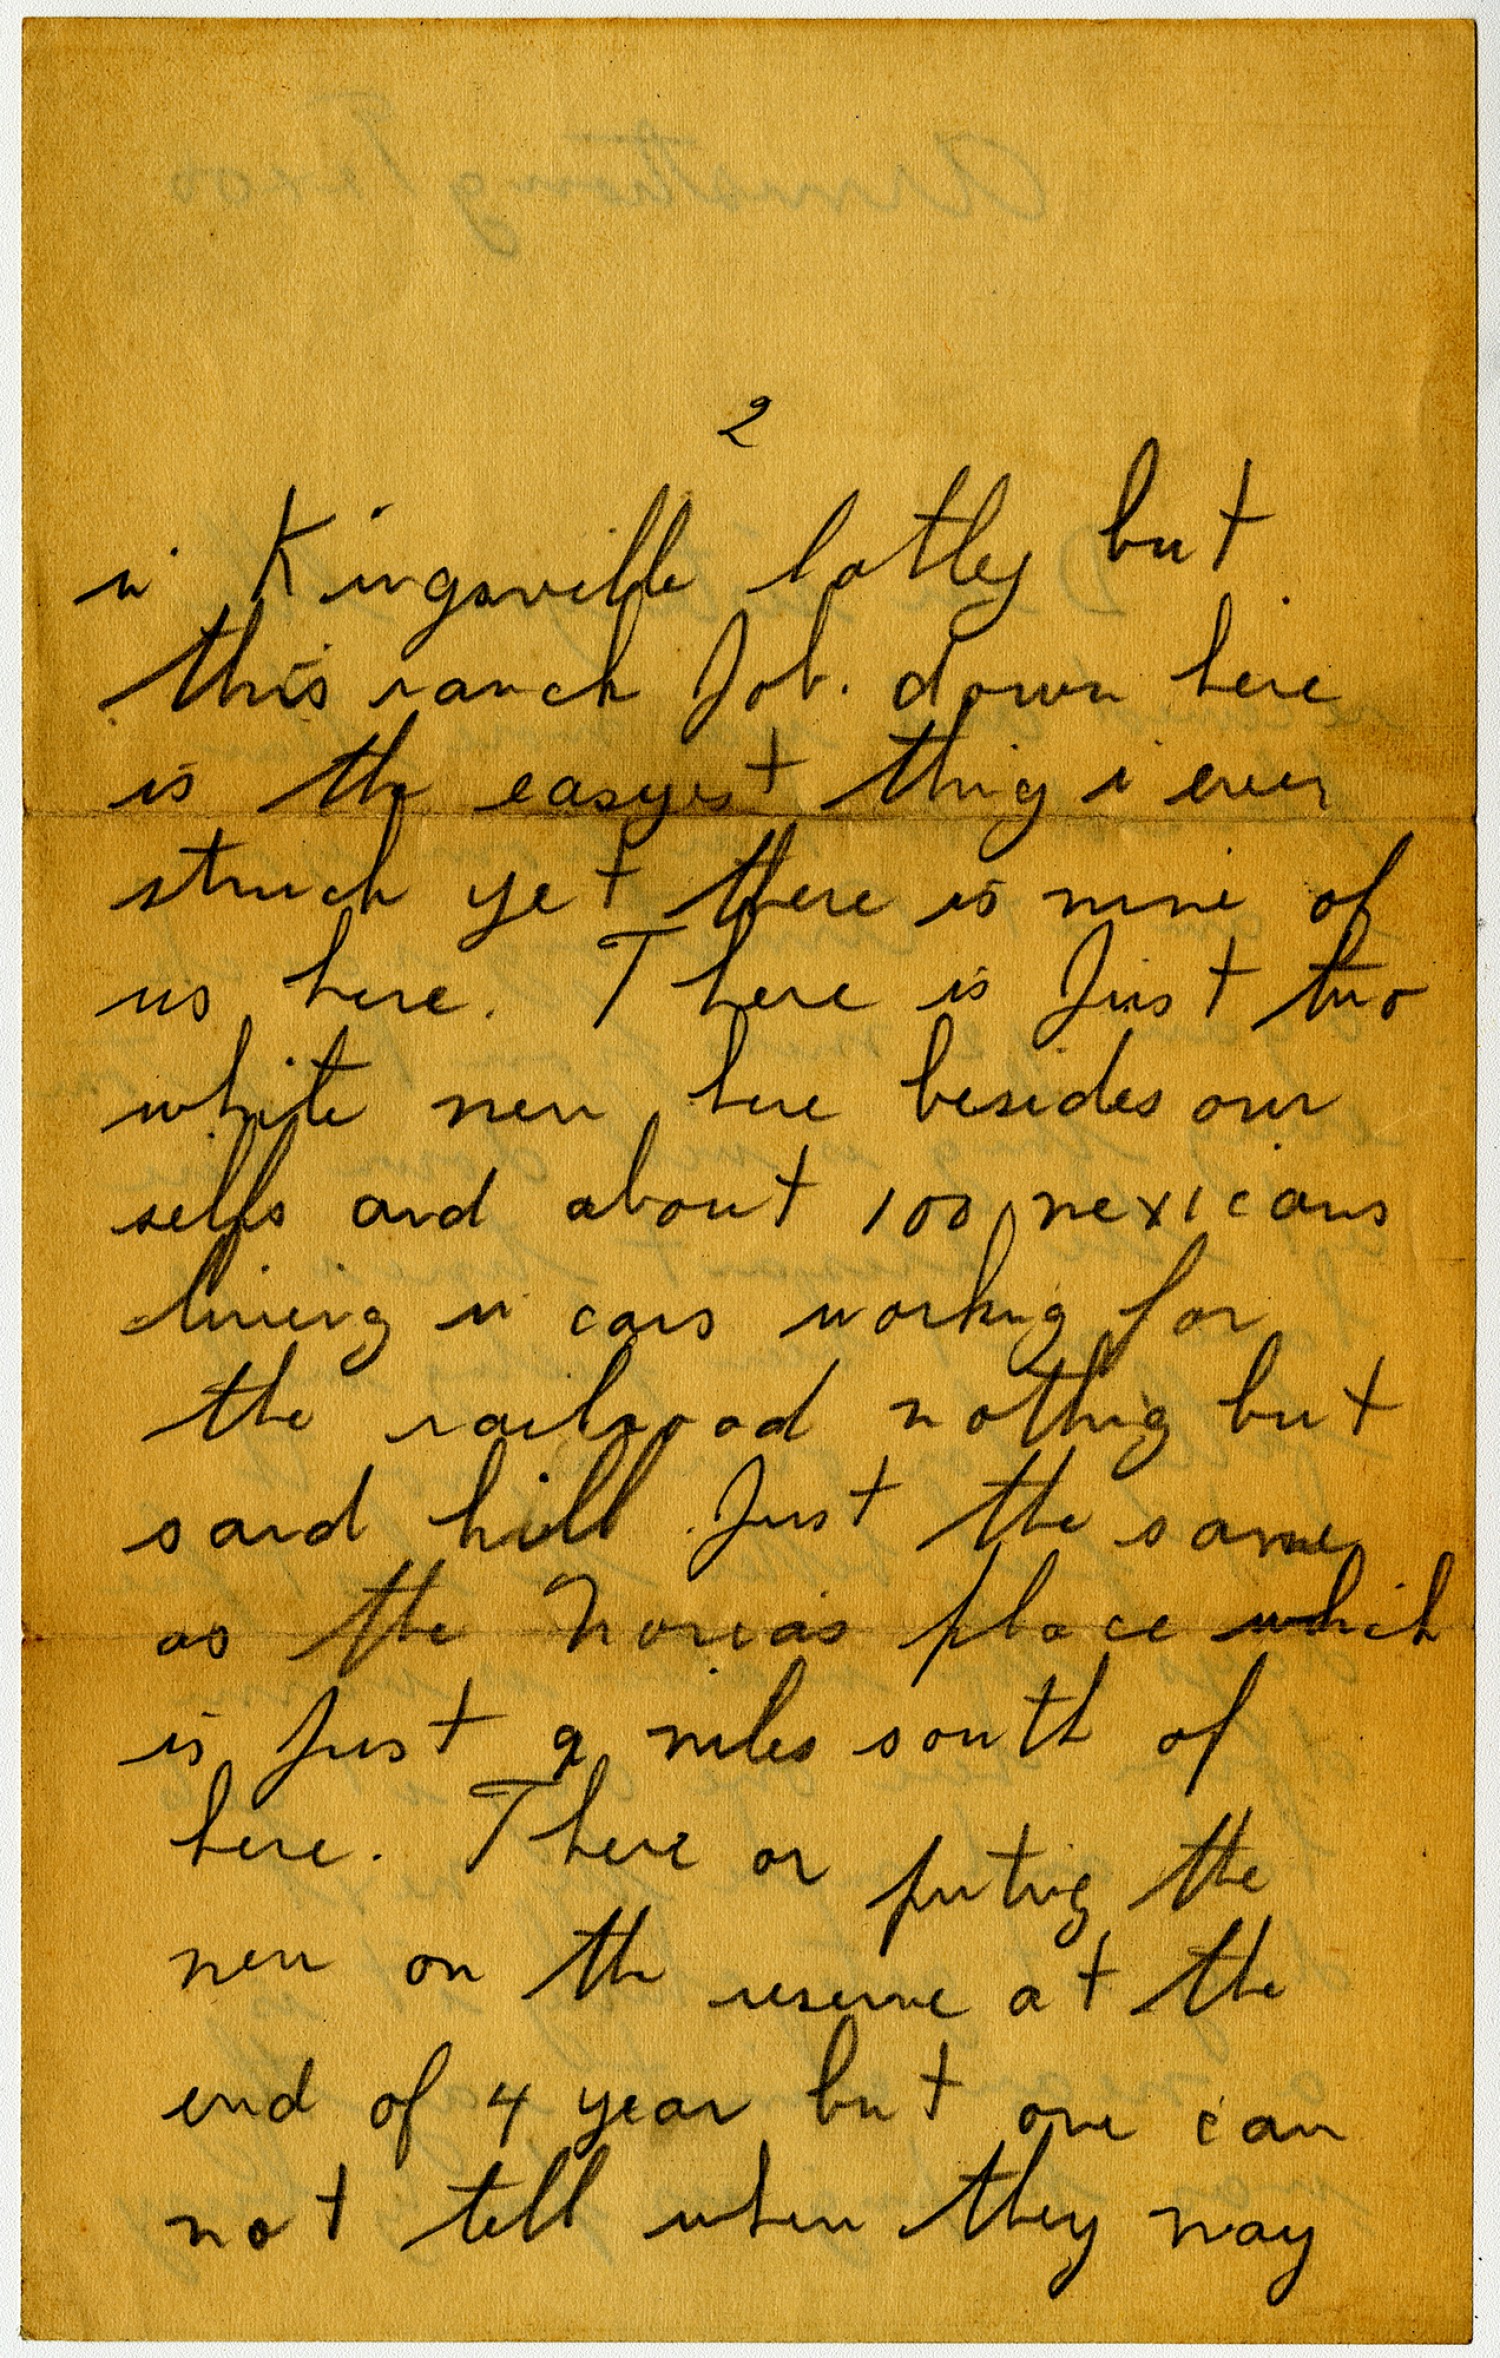 2
in Kingsville latley but
this ranch Job. down here
is the easyest thing i ever
struck yet there is nine of
us here. There is Just two
white men here besides our
selfs and about 100 mexicans
living in cars working for
the railroad nothing but
sand hill Just the same
as the Norias place which
is Just 9 miles south of
here. There ar puting the
men on the reserve at the
end of 4 year but one can
not tell when they may